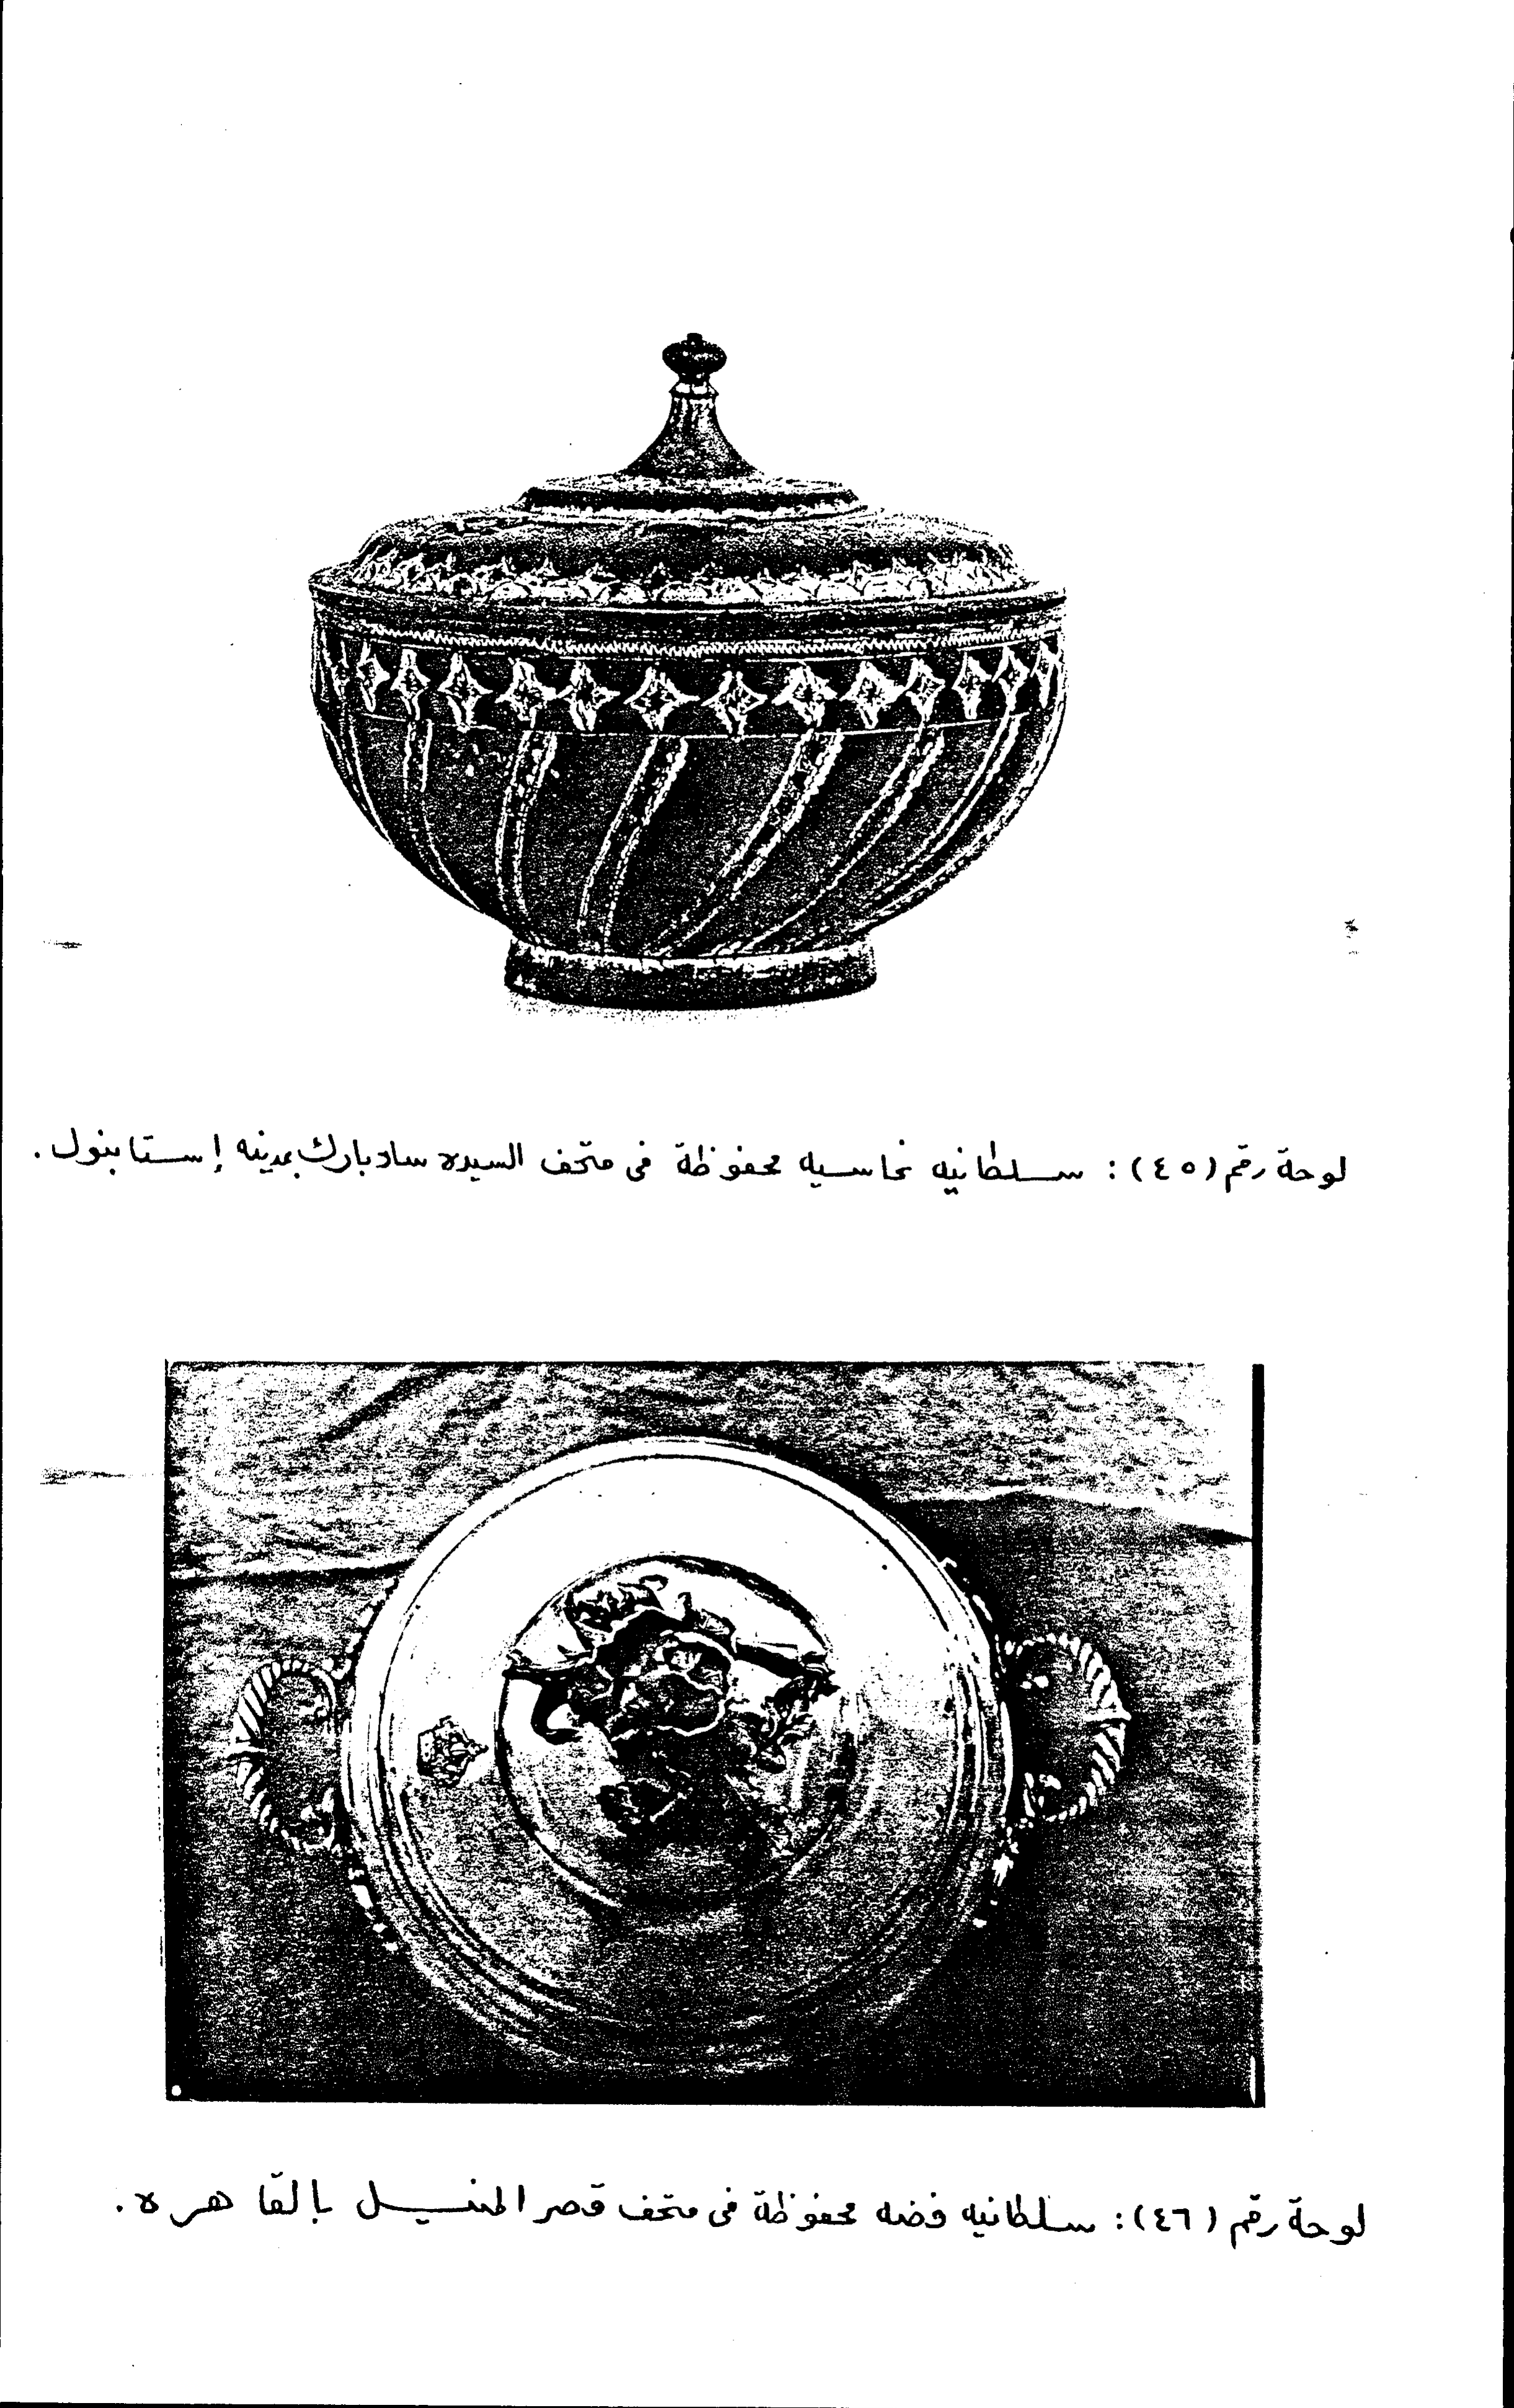 لوحة رقم (٤٥): سلطانيه نحاسيه محفوظة فى متحف السيده سادبارك بمدينه إستابنول.
لوحة رقم (٤٦): سلطانيه فضه محفوظة فى متحف قصر المنيل بالقاهره.